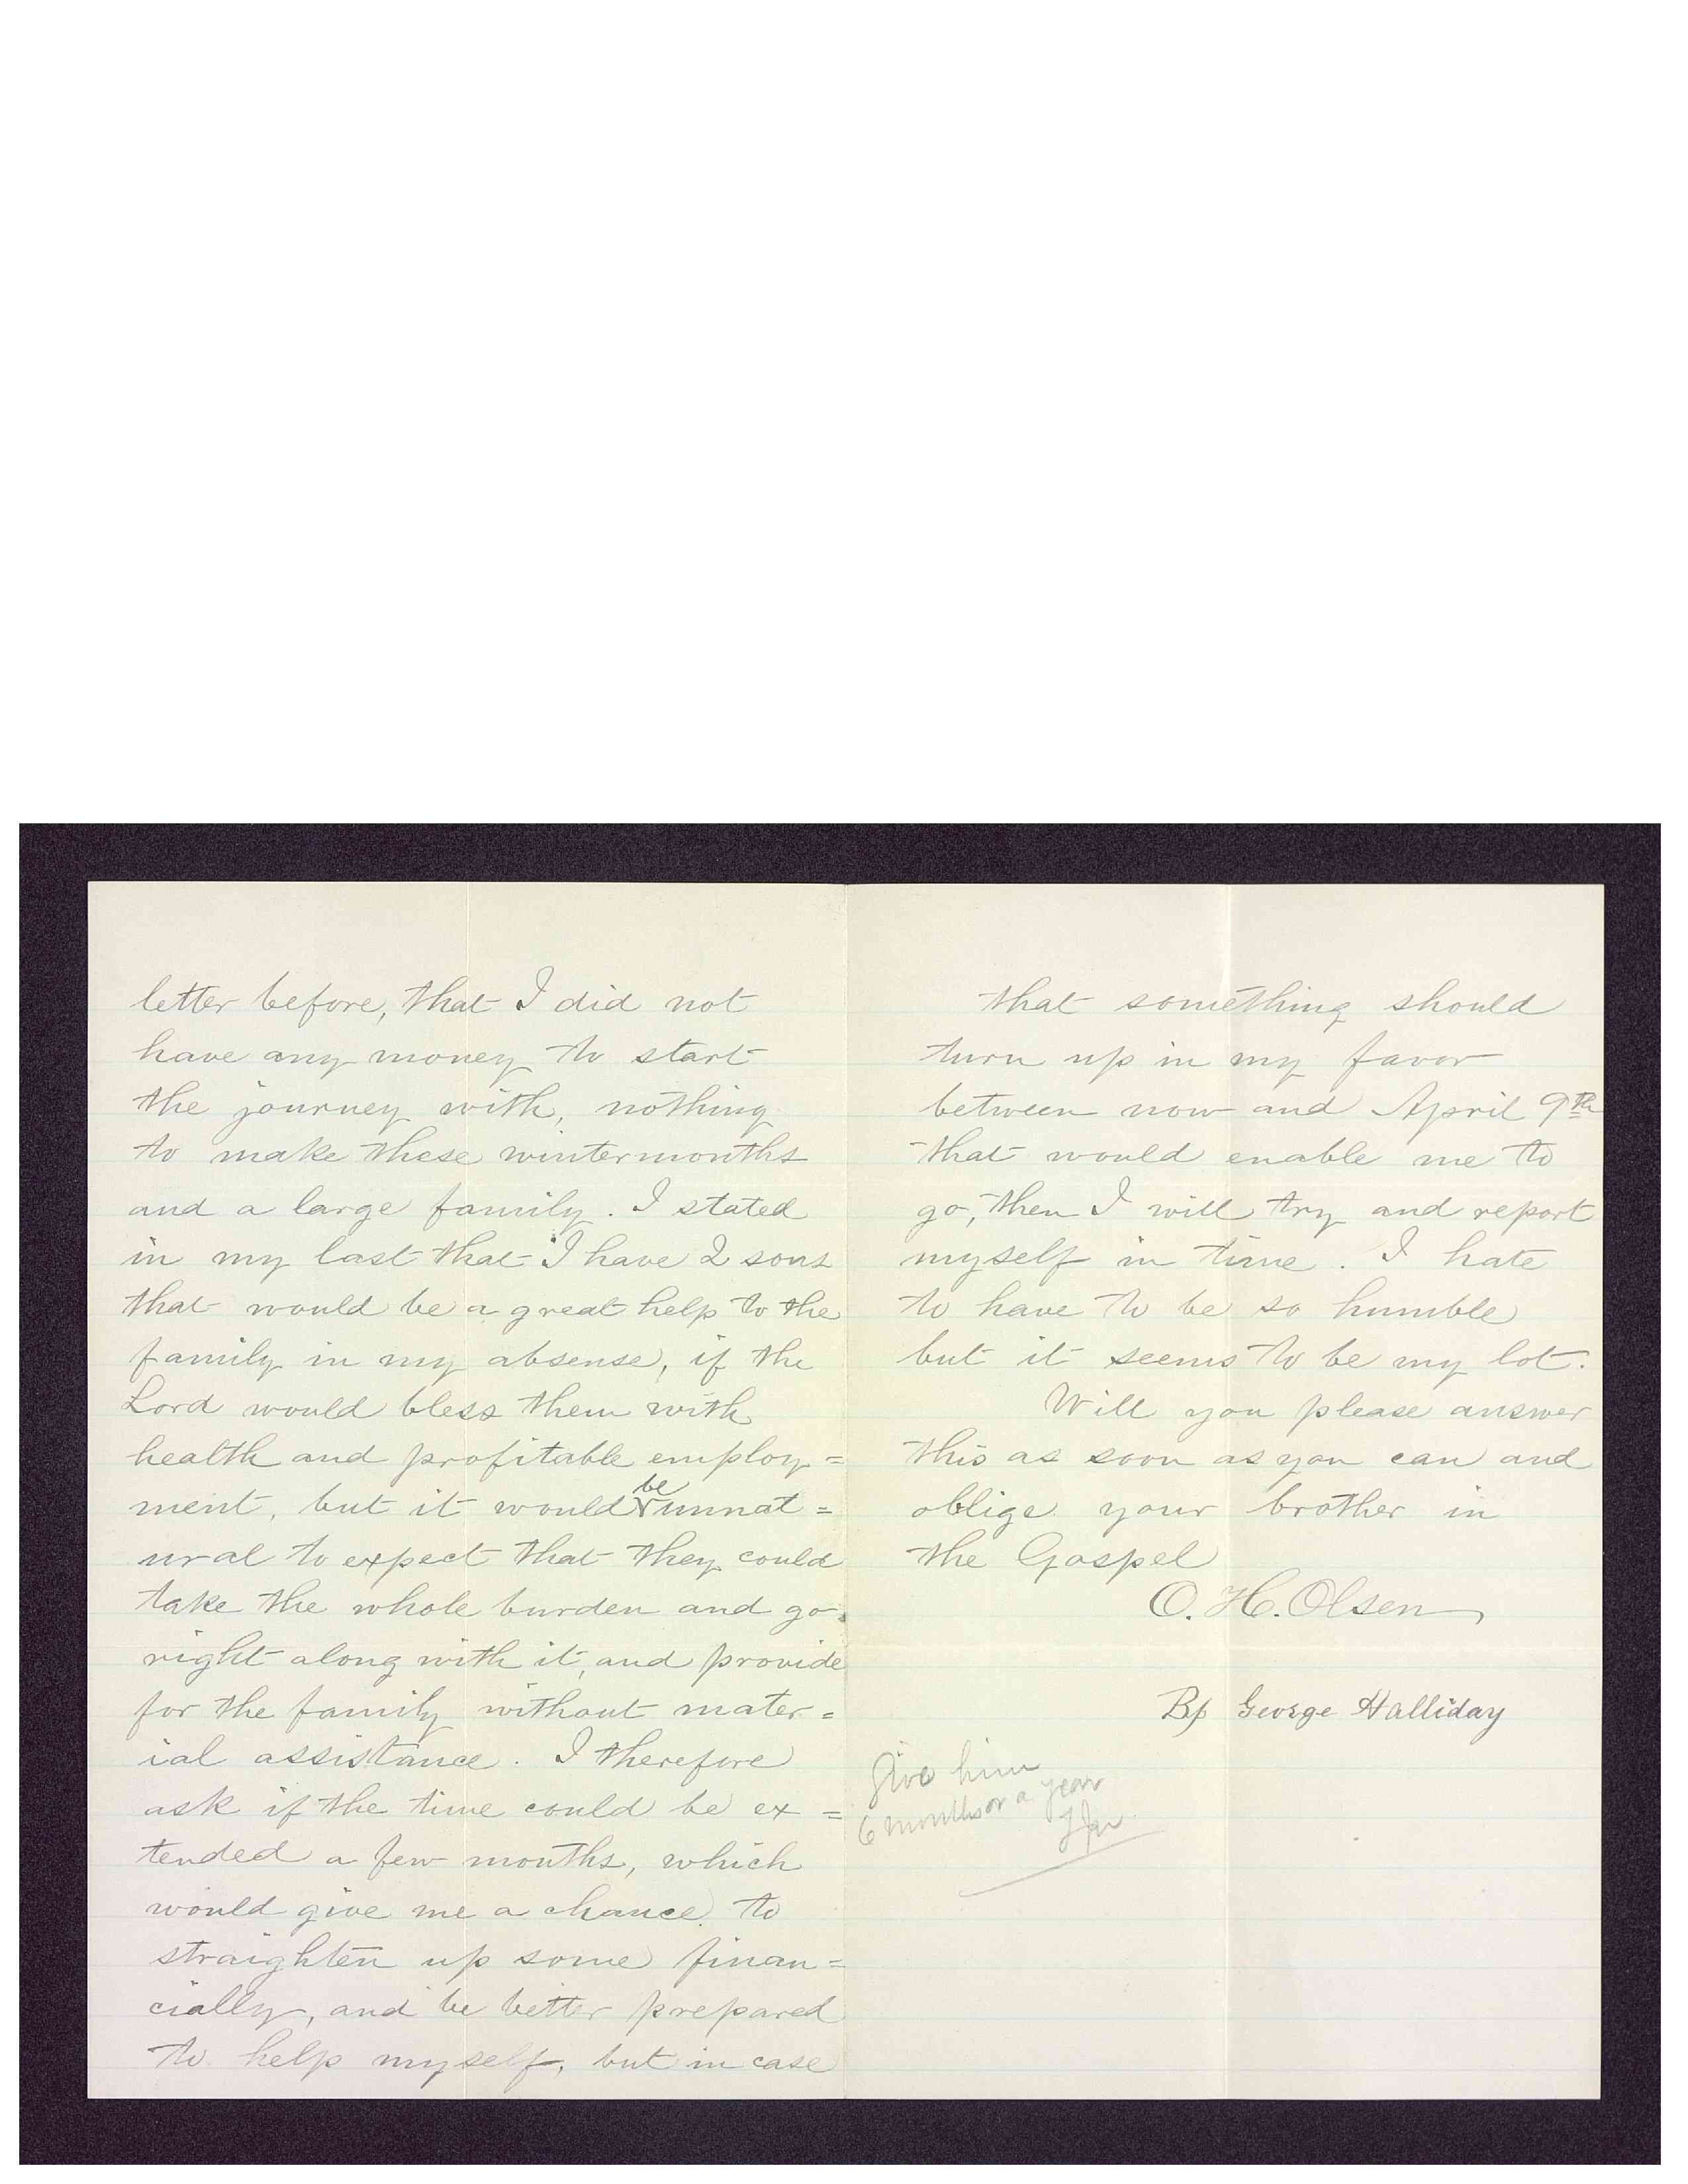 letter before, that I did not
have any money to start
the journey with, nothing
to make these wintermonths
and a large family. I stated
in my last that I have 2 sons
that would be a great help to the
family in my absense, if the
Lord would bless them with
health and profitable employ=
ment, but it would be unnat=
ural to expect that they could
take the whole burden and go
right along with it, and provide
for the family without mater=
ial assistance. I therefore
ask if the time could be ex=
tended a few months, which
would give me a chance to
straighten up some finan=
cially, and be better prepared
to help myself, but in case
that something should
turn up in my favor
between now and April 9th
that would enable me to
go, then I will try and report
myself in time. I hate
to have to be so humble
but it seems to be my lot.
Will you please answer
this as soon as you can and
oblige your brother in
the Gospel
O. H. Olsen
Bp George Halliday
Give him
6 months or a year